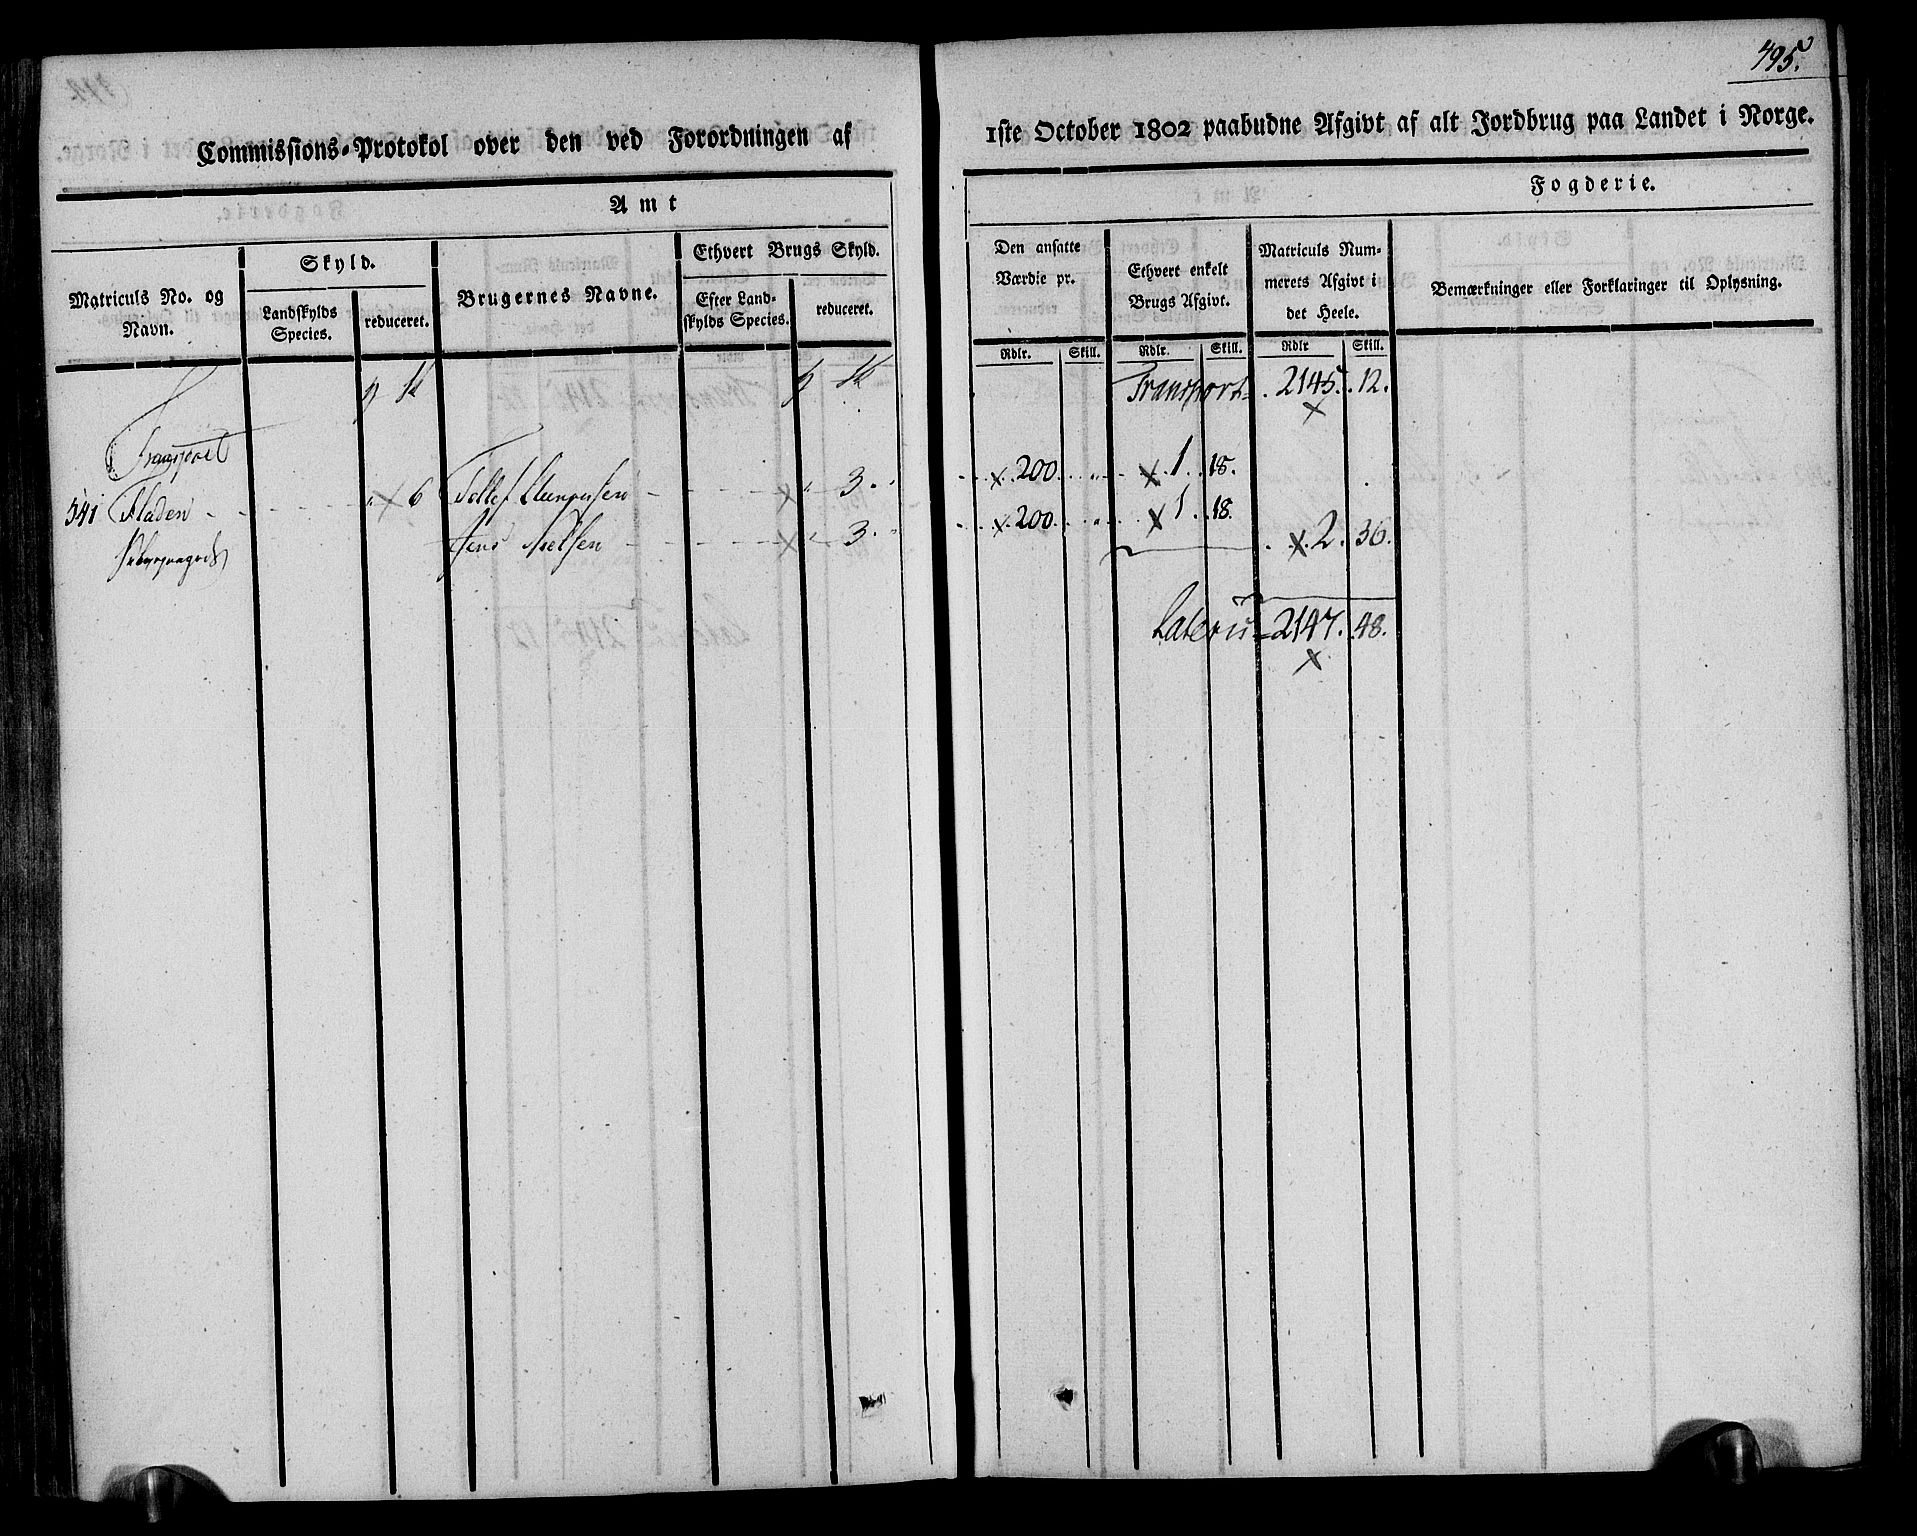 495.
Commissions-Protokol over den ved Forordningen af 1ste October 1802 paabudne Afgivt af alt Jordbrug paa Landet i Norge.
Amt
Fogderie.
Matriculs No. og Navn.
Skyld.
Landskylds Species.
reduceret.
Brugernes Navne.
Ethvert Brugs Skyld.
Efter Landskylds Species.
reduceret.
Den ansatte Værdie pr.
Ethvert enkelt Brugs Afgivt.
Matriculs Nummerets Afgivt i det Heele.
Bemærkninger eller Forklaringer til Oplysning.
Rdlr. Skill. Rdlr. Skill. Rdlr Skill.
Transport 2145. 12.
Transport
541 Fladen 6 Tellef 3. 200 1. 18.
Jens Nielsen 3. 200 1. 18.
2. 36.
Lateru 2147. 48.